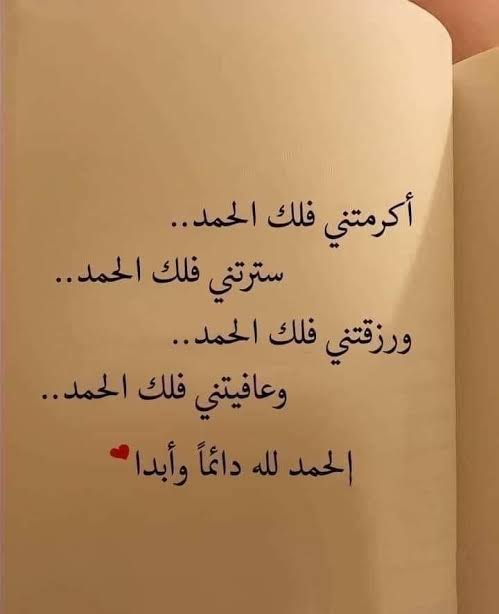 أكرمتني فلك الحمد..
سترتني فلك الحمد..
ورزقتني فلك الحمد..
وعافيتني فلك الحمد..
الحمد لله دائماً وأبدا